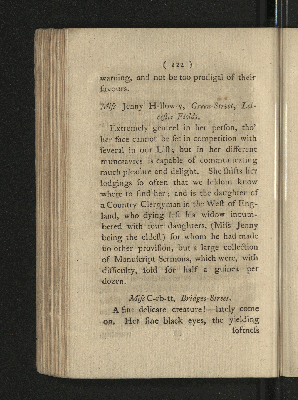 ( 122 )
warning, and not be too prodigal of their
favours.
Miſs Jenny H-ll-w-y, Green-Street, Lei-
ceſter Fields.
Extremely genteel in her perſon, tho'
her face cannot be ſet in competition with
ſeveral in our Liſt; but in her different
manœuvres is capable of communicating
much pleaſure and delight. She ſhifts her
lodgings ſo often that we ſeldom know
where to find her; and is the daughter of
a Country Clergyman in the Weſt of Eng-
land, who dying left his widow incum-
bered with four daughters, (Miſs Jenny
being the eldeſt) for whom he had made
no other proviſion, but a large collection
of Manuſcript Sermons, which were, with
difficulty, ſold for half a guinea per
dozen.
Miſs C-rb-tt, Bridges-Street.
A fine delicate creature!—lately come
on. Her fine black eyes, the yielding
ſoftneſs